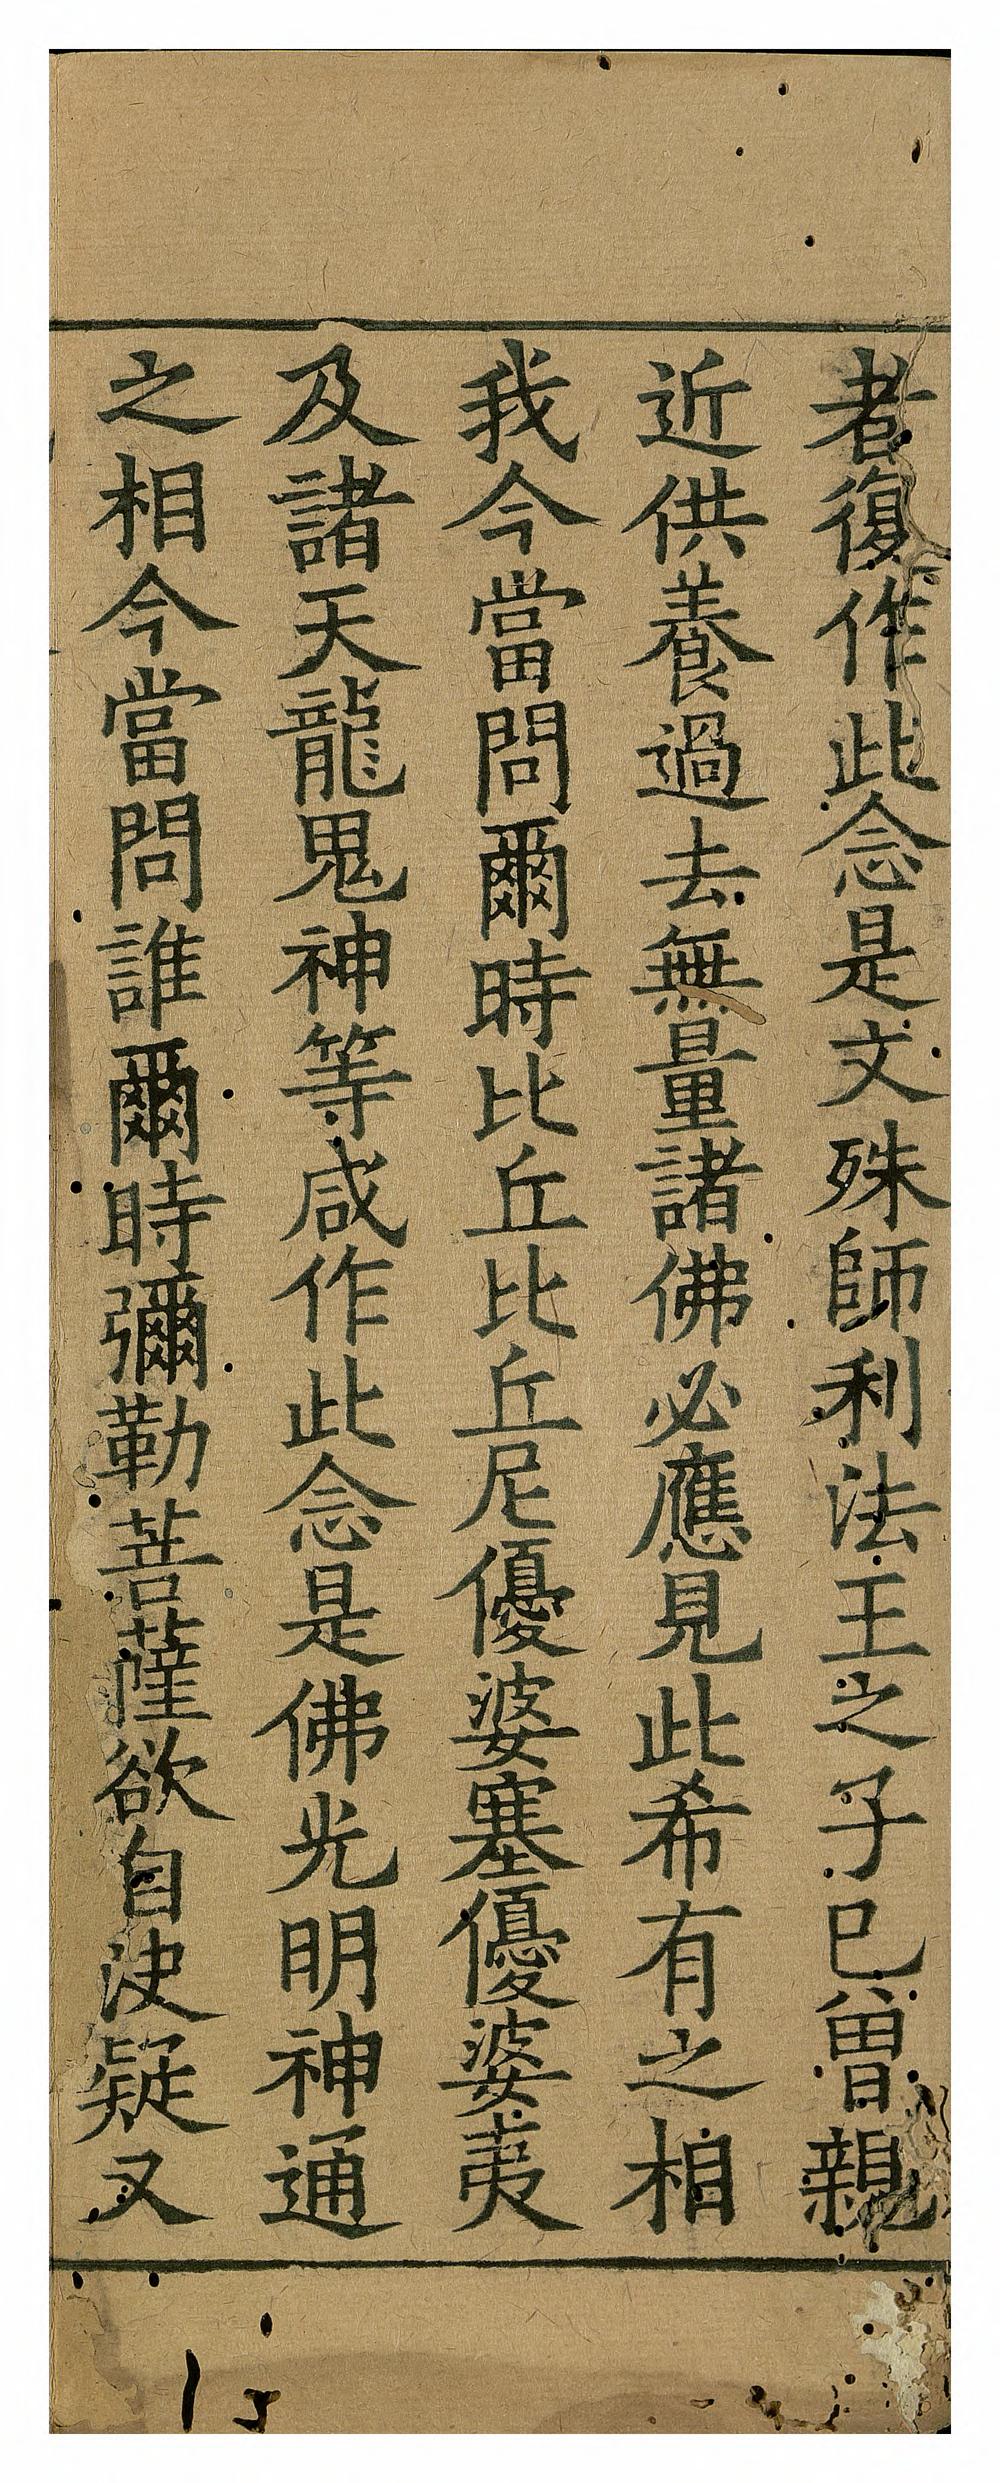 者復作此念是文殊師利法王之子已曾親
近供養過去無量諸佛必應見此希有之相
我今當問爾時比丘比丘尼優婆塞優婆夷
及諸天龍鬼神等咸作此念是佛光明神通
之相今當問誰爾時彌勒菩薩欲自決疑又